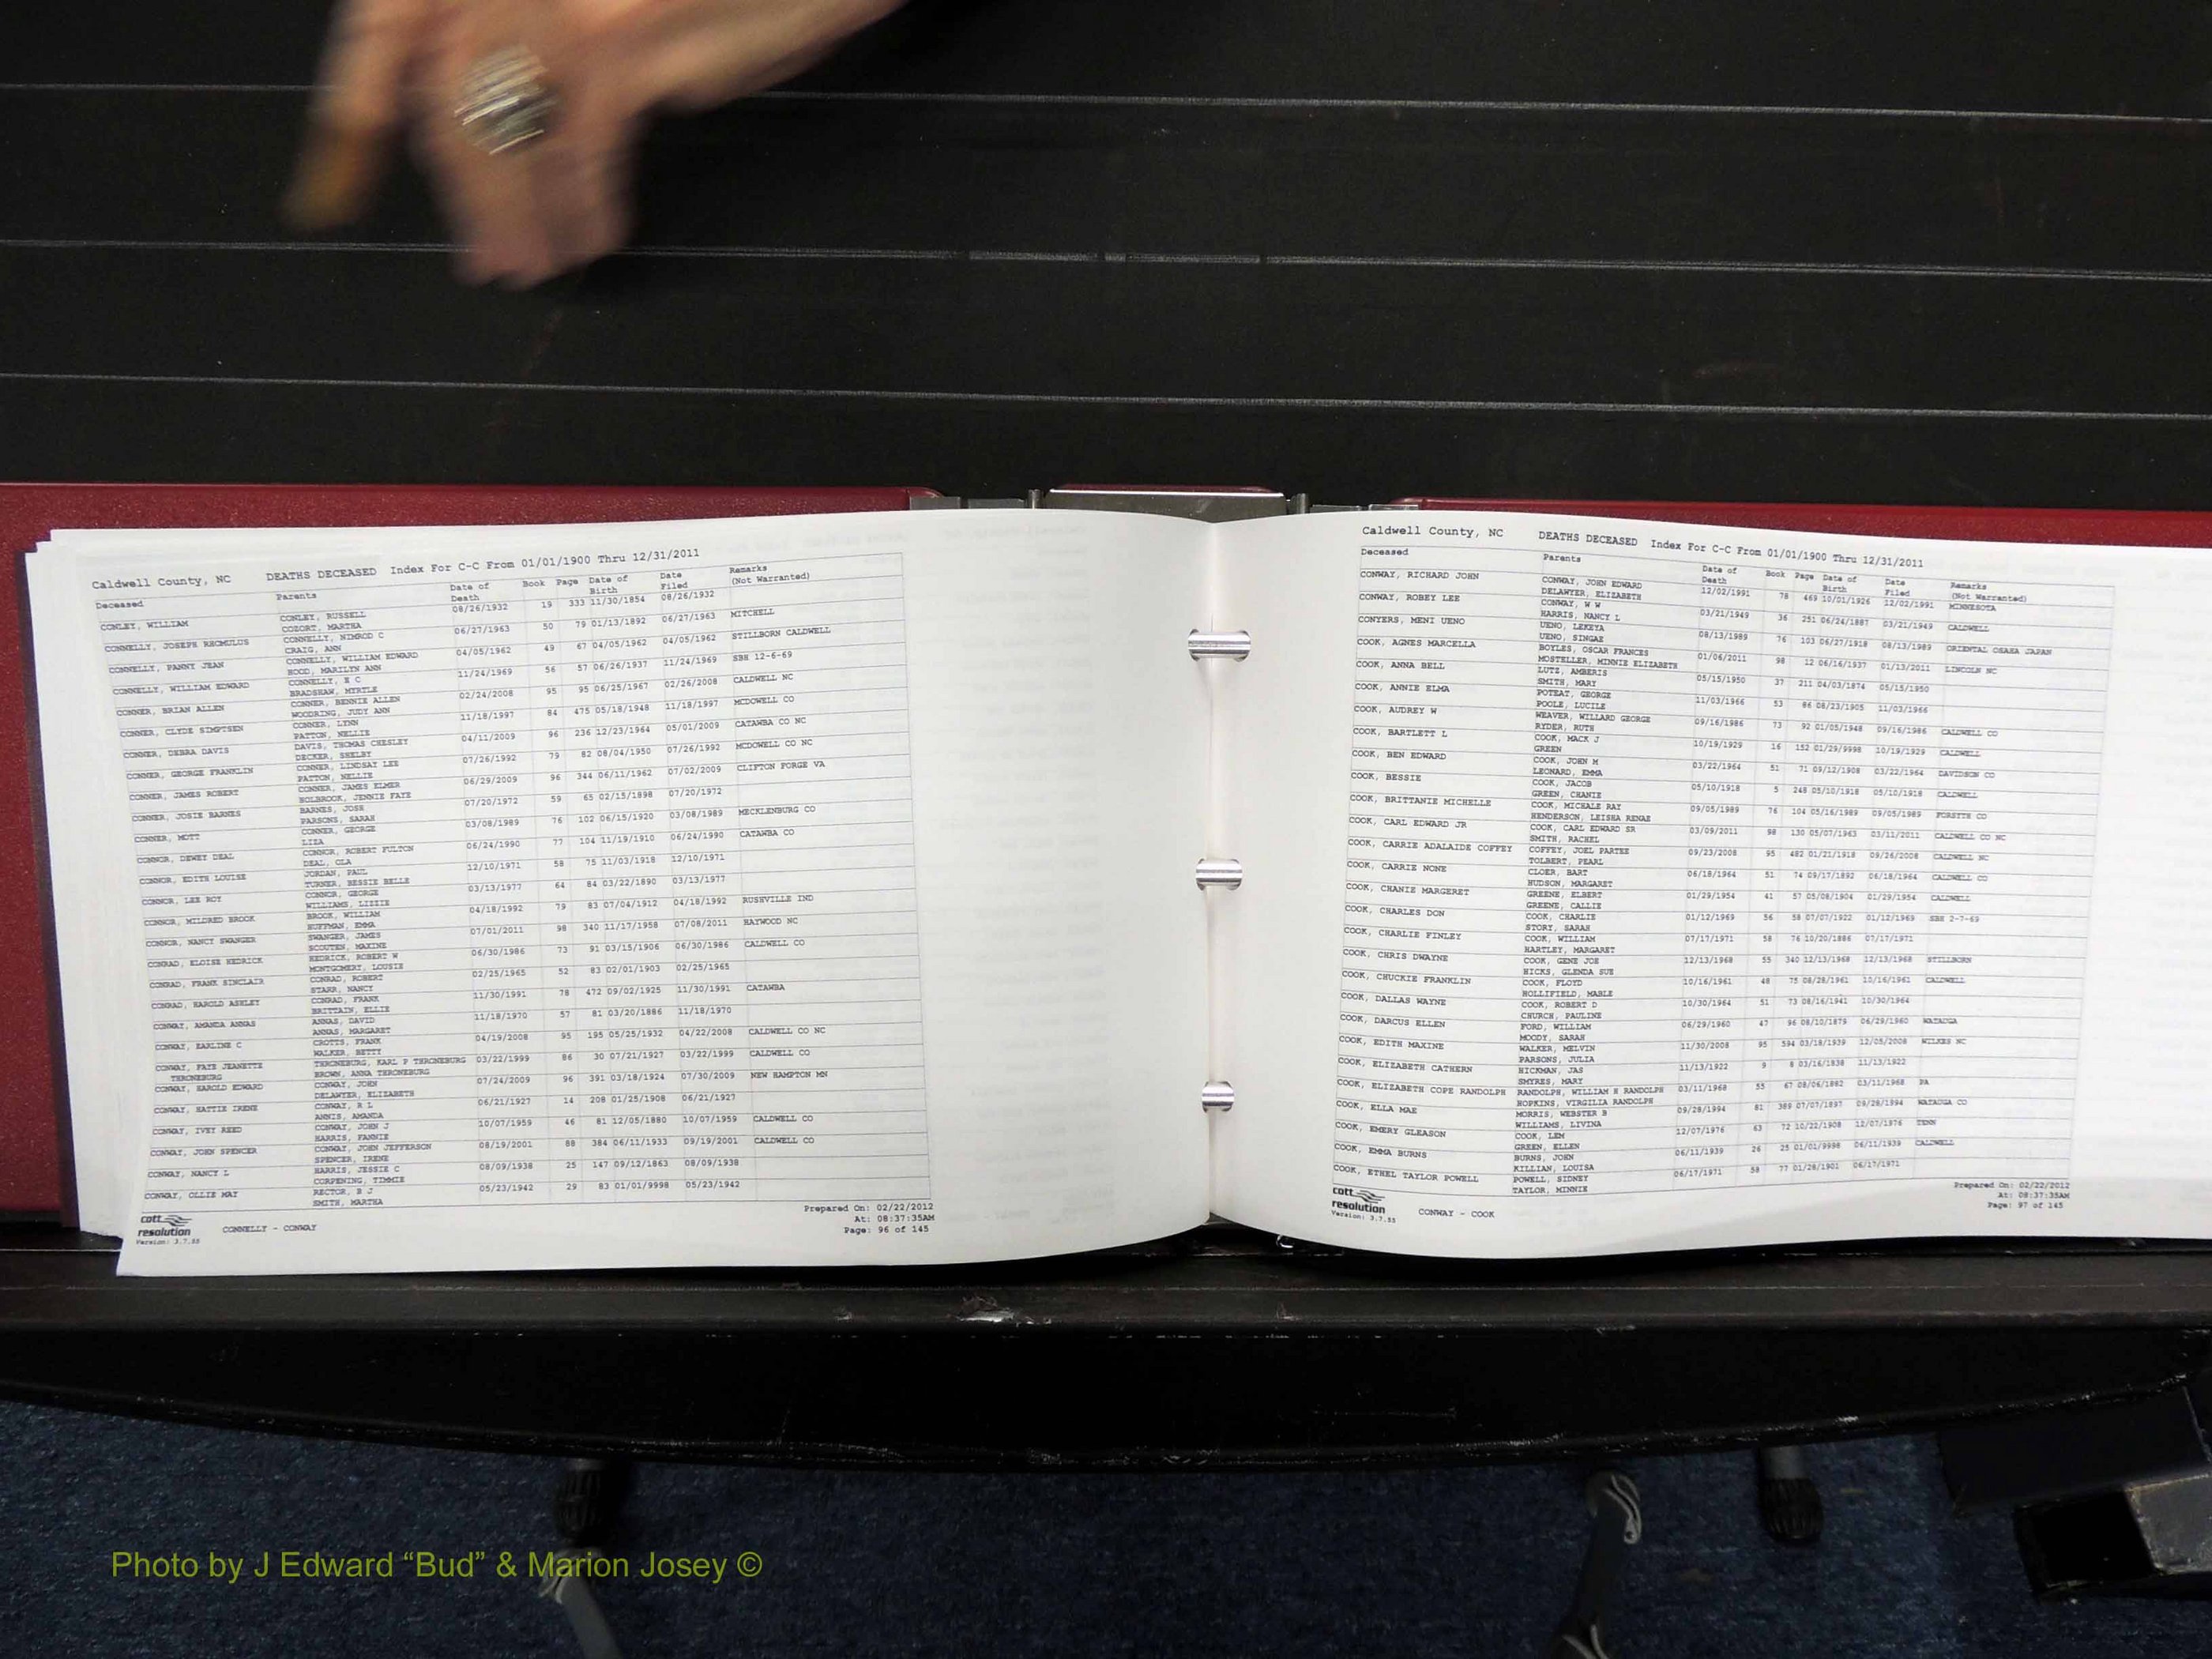 Caldwell County, NC DEATHS DECEASED Index For C-C From 01/01/1900 Thru 12/31/2011
Deceased Parents Date of Death Book Page Date of Birth Date Filed Remarks (Not Warranted)
CONLEY, WILLIAM CONLEY, RUSSELL 08/26/1932 19 333 11/30/1854 08/26/1932
COZORT, MARTHA
CONNELLY, JOSEPH RHOMULUS CONNELLY, NIMROD C 06/27/1963 50 79 01/13/1892 06/27/1963 MITCHELL
CRAIG, ANN
CONNELLY, PANNY JEAN CONNELLY, WILLIAM EDWARD 04/05/1962 49 67 04/05/1962 04/05/1962 STILLBORN CALDWELL
HOOD, MARILYN ANN
CONNELLY, WILLIAM EDWARD CONNELLY, E C 11/24/1969 56 57 06/26/1937 11/24/1969 SBH 12-6-69
BRADSHAW, MYRTLE
CONNER, BRIAN ALLEN CONNER, BENNIE ALLEN 02/24/2008 95 95 06/25/1967 02/26/2008 CALDWELL NC
WOODRING, JUDY ANN
CONNER, CLYDE SIMPTSEN CONNER, LYNN 11/18/1997 84 475 05/18/1948 11/18/1997 MCDOWELL CO
PATTON, NELLIE
CONNER, DEBRA DAVIS DAVIS, THOMAS CHESLEY 04/11/2009 96 236 12/23/1964 05/01/2009 CATAWBA CO NC
DECKER, SHELBY
CONNER, GEORGE FRANKLIN CONNER, LINDSAY LEE 07/26/1992 79 82 08/04/1950 07/26/1992 MCDOWELL CO NC
PATTON, NELLIE
CONNER, JAMES ROBERT CONNER, JAMES ELMER 06/29/2009 96 344 06/11/1962 07/02/2009 CLIFTON FORGE VA
HOLBROOK, JENNIE FAYE
CONNER, JOSIE BARNES BARNES, JOSH 07/20/1972 59 65 02/15/1898 07/20/1972
PARSONS, SARAH
CONNER, MOTT CONNER, GEORGE 03/08/1989 76 102 06/15/1920 03/08/1989 MECKLENBURG CO
LIZA
CONNOR, DEWEY DEAL CONNOR, ROBERT FULTON 06/24/1990 77 104 11/19/1910 06/24/1990 CATAWBA CO
DEAL, OLA
CONNOR, EDITH LOUISE JORDAN, PAUL 12/10/1971 58 75 11/03/1918 12/10/1971
TURNER, BESSIE BELLE
CONNOR, LEE ROY CONNOR, GEORGE 03/13/1977 64 84 03/22/1890 03/13/1977
WILLIAMS, LIZZIE
CONNOR, MILDRED BROOK BROOK, WILLIAM 04/18/1992 79 83 07/04/1912 04/18/1992 RUSHVILLE IND
HUFFMAN, EMMA
CONNOR, NANCY SWANGER SWANGER, JAMES 07/01/2011 98 340 11/17/1958 07/08/2011 HAYWOOD NC
SCOUTEN, MAXINE
CONRAD, ELOISE HEDRICK HEDRICK, ROBERT W 06/30/1986 73 91 03/15/1906 06/30/1986 CALDWELL CO
MONTGOMERY, LOUSIE
CONRAD, FRANK SINCLAIR CONRAD, ROBERT 02/25/1965 52 83 02/01/1903 02/25/1965
STARR, NANCY
CONRAD, HAROLD ASHLEY CONRAD, FRANK 11/30/1991 78 472 09/02/1925 11/30/1991 CATAWBA
BRITTAIN, ELLIE
CONWAY, AMANDA ANNAS ANNAS, DAVID 11/18/1970 57 81 03/20/1886 11/18/1970
ANNAS, MARGARET
CONWAY, EARLINE C CROTTS, FRANK 04/19/2008 95 195 05/25/1932 04/22/2008 CALDWELL CO NC
WALKER, BETTY
CONWAY, FAYE JEANETTE THRONEBURG, KARL P THRONEBURG 03/22/1999 86 30 07/21/1927 03/22/1999 CALDWELL CO
THRONEBURG BROWN, ANNA THRONEBURG
CONWAY, HAROLD EDWARD CONWAY, JOHN 07/24/2009 96 391 03/18/1924 07/30/2009 NEW HAMPTON MN
DELAWYER, ELIZABETH
CONWAY, HATTIE IRENE CONWAY, R L 06/21/1927 14 208 01/25/1908 06/21/1927
ANNIS, AMANDA
CONWAY, IVEY REED CONWAY, JOHN J 10/07/1959 46 81 12/05/1880 10/07/1959 CALDWELL CO
HARRIS, FANNIE
CONWAY, JOHN SPENCER CONWAY, JOHN JEFFERSON 08/19/2001 88 384 06/11/1933 09/19/2001 CALDWELL CO
SPENCER, IRENE
CONWAY, NANCY L HARRIS, JESSIE C 08/09/1938 25 147 09/12/1863 08/09/1938
CORPENING, TIMMIE
CONWAY, OLLIE MAY RECTOR, B J 05/23/1942 29 83 01/01/9998 05/23/1942
SMITH, MARTHA
cott resolution
Version: 3.7.55
CONNELLY - CONWAY
Prepared On: 02/22/2012
At: 08:37:35AM
Page: 96 of 145
Caldwell County, NC DEATHS DECEASED Index For C-C From 01/01/1900 Thru 12/31/2011
Deceased Parents Date of Death Book Page Date of Birth Date Filed Remarks (Not Warranted)
CONWAY, RICHARD JOHN CONWAY, JOHN EDWARD 12/02/1991 78 469 10/01/1926 12/02/1991 MINNESOTA
DELAWYER, ELIZABETH
CONWAY, ROBEY LEE CONWAY, W W 03/21/1949 36 251 06/24/1887 03/21/1949 CALDWELL
HARRIS, NANCY L
CONYERS, MENI UENO UENO, LEKEYA 08/13/1989 76 103 06/27/1918 08/13/1989 ORIENTAL OSAKA JAPAN
UENO, SINGAE
COOK, AGNES MARCELLA BOYLES, OSCAR FRANCES 01/06/2011 98 12 06/16/1937 01/13/2011 LINCOLN NC
MOSTELLER, MINNIE ELIZABETH
COOK, ANNA BELL LUTZ, AMBERIS 05/15/1950 37 211 04/03/1874 05/15/1950
SMITH, MARY
COOK, ANNIE ELMA POTEAT, GEORGE 11/03/1966 53 86 08/23/1905 11/03/1966
POOLE, LUCILE
COOK, AUDREY W WEAVER, WILLARD GEORGE 09/16/1986 73 92 01/05/1948 09/16/1986 CALDWELL CO
RYDER, RUTH
COOK, BARTLETT L COOK, MACK J 10/19/1929 16 152 01/29/9998 10/19/1929 CALDWELL
GREEN
COOK, BEN EDWARD COOK, JOHN M 03/22/1964 51 71 09/12/1908 03/22/1964 DAVIDSON CO
LEONARD, EMMA
COOK, BESSIE COOK, JACOB 05/10/1918 5 248 05/10/1918 05/10/1918 CALDWELL
GREEN, CHANIE
COOK, BRITTANIE MICHELLE COOK, MICHALE RAY 09/05/1989 76 104 05/16/1989 09/05/1989 FORSYTE CO
HENDERSON, LEISHA RENAE
COOK, CARL EDWARD JR COOK, CARL EDWARD SR 03/09/2011 98 130 05/07/1963 03/11/2011 CALDWELL CO NC
SMITH, RACHEL
COOK, CARRIE ADALAIDE COFFEY COFFEY, JOEL PARTEE 09/23/2008 95 482 01/21/1918 09/26/2008 CALDWELL NC
TOLBERT, PEARL
COOK, CARRIE NONE CLOER, BART 06/18/1964 51 74 09/17/1892 06/18/1964 CALDWELL CO
HUDSON, MARGARET
COOK, CHANIE MARGERET GREENE, ELBERT 01/29/1954 41 57 05/08/1904 01/29/1954 CALDWELL
GREENE, CALLIE
COOK, CHARLES DON COOK, CHARLIE 01/12/1969 56 58 07/07/1922 01/12/1969 SBH 2-7-69
STORY, SARAH
COOK, CHARLIE FINLEY COOK, WILLIAM 07/17/1971 58 76 10/20/1886 07/17/1971
HARTLEY, MARGARET
COOK, CHRIS DWAYNE COOK, GENE JOE 12/13/1968 55 340 12/13/1968 12/13/1968 STILLBORN
HICKS, GLENDA SUE
COOK, CHUCKIE FRANKLIN COOK, FLOYD 10/16/1961 48 75 08/28/1961 10/16/1961 CALDWELL
HOLLIFIELD, MABLE
COOK, DALLAS WAYNE COOK, ROBERT D 10/30/1964 51 73 08/16/1941 10/30/1964
CHURCH, PAULINE
COOK, DARCUS ELLEN FORD, WILLIAM 06/29/1960 47 96 08/10/1879 06/29/1960 WATAUGA
MOODY, SARAH
COOK, EDITH MAXINE WALKER, MELVIN 11/30/2008 95 594 03/18/1939 12/05/2008 WILKES NC
PARSONS, JULIA
COOK, ELIZABETH CATHERN HICKMAN, JAS 11/13/1922 9 8 03/16/1838 11/13/1922
SMYRES, MARY
COOK, ELIZABETH COPE RANDOLPH RANDOLPH, WILLIAM H RANDOLPH 03/11/1968 55 67 08/06/1882 03/11/1968 PA
HOPKINS, VIRGILLA RANDOLPH
COOK, ELLA MAE MORRIS, WEBSTER B 09/28/1994 81 389 07/07/1897 09/28/1994 WATAUGA CO
WILLIAMS, LIVINA
COOK, EMERY GLEASON COOK, LEM 12/07/1976 63 72 10/22/1908 12/07/1976 TENN
GREEN, ELLEN
COOK, EMMA BURNS BURNS, JOHN 06/11/1939 26 25 01/01/9998 06/11/1939 CALDWELL
KILLIAN, LOUISA
COOK, ETHEL TAYLOR POWELL POWELL, SIDNEY 06/17/1971 58 77 01/28/1901 06/17/1971
TAYLOR, MINNIE
cott resolution
Version: 3.7.55
CONWAY - COOK
Prepared On: 02/22/2012
At: 08:37:35AM
Page: 97 of 145
Photo by J Edward “Bud” & Marion Josey ©